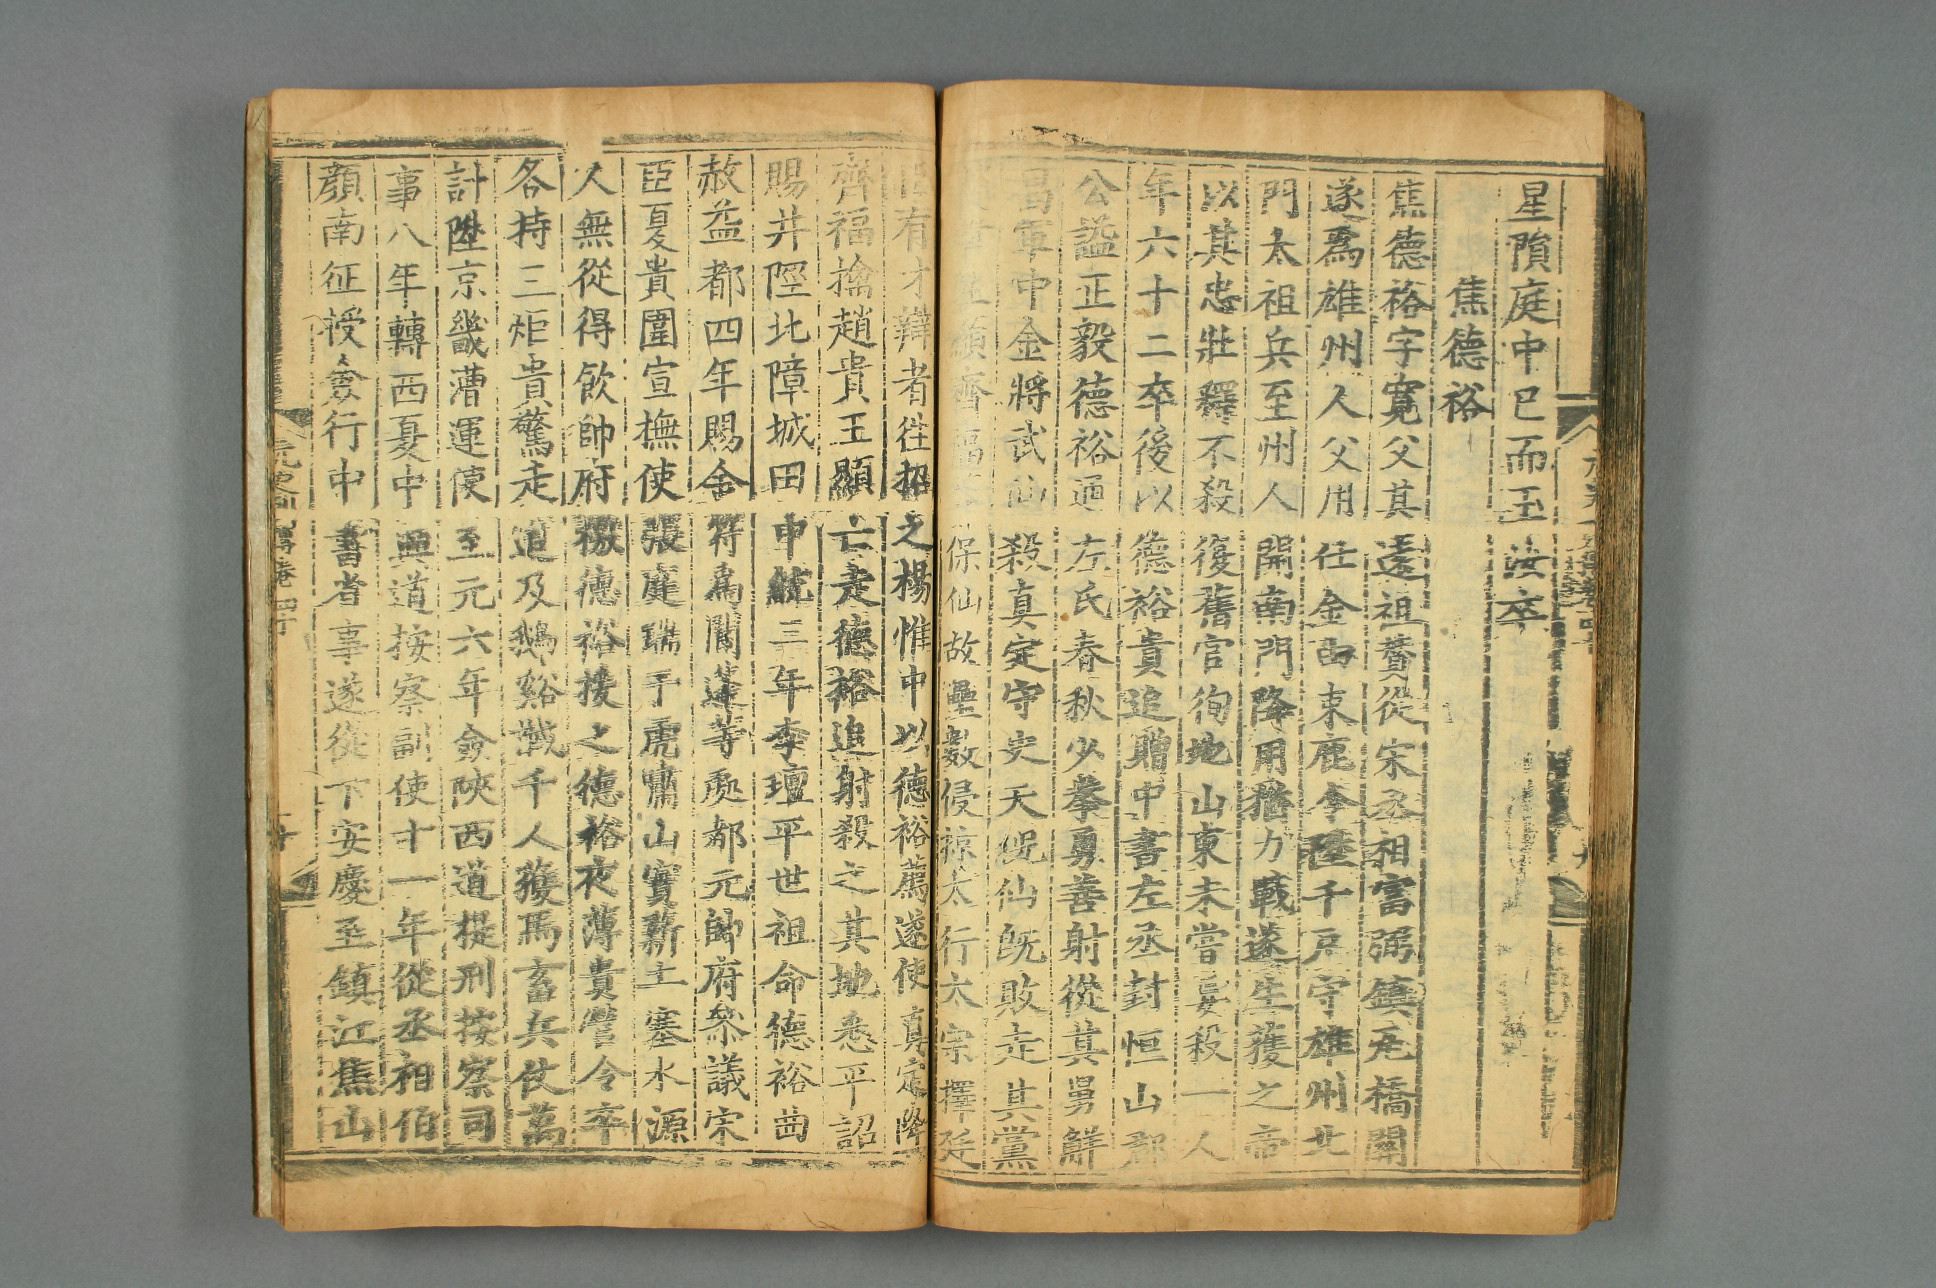 星隕庭中已而玉汝卒
焦德裕
焦德裕字寬父其遠祖贊從宋丞相富弼鎮瓦橋關
遂爲雄州人父用仕金由束鹿令陞千戶守雄州北
門太祖兵至州人開南門降用猶力戰遂生獲之帝
以其忠壯釋不殺復舊官徇地山東未嘗妄殺一人
年六十二卒後以德裕貴追贈中書左丞封恒山郡
公謚正毅德裕通左氏春秋少拳勇善射從其舅解
昌軍中金將武仙殺真定守史天倪仙旣敗走其黨
趙貴王顯齊福等保仙故壘數侵掠太行太宗擇廷
臣有才辯者往招之楊惟中以德裕薦遂使真定降
齊福擒趙貴王顯亡走德裕追射殺之其地悉平詔
賜井陘北障城田中統三年李璮平世祖命德裕曲
赦益都四年賜金符爲閬蓬等處都元帥府叅議宋
臣夏貴圍宣撫使張庭瑞于虎嘯山實薪土塞水源
人無從得飲帥府檄德裕援之德裕夜薄貴營令卒
各持三炬貴驚走追及鵝谿馘千人獲馬畜兵仗萬
計陞京畿漕運使至元六年僉陜西道提刑按察司
事八年轉西夏中興道按察副使十一年從丞相伯
顔南征授僉行中書省事遂從下安慶至鎮江焦山